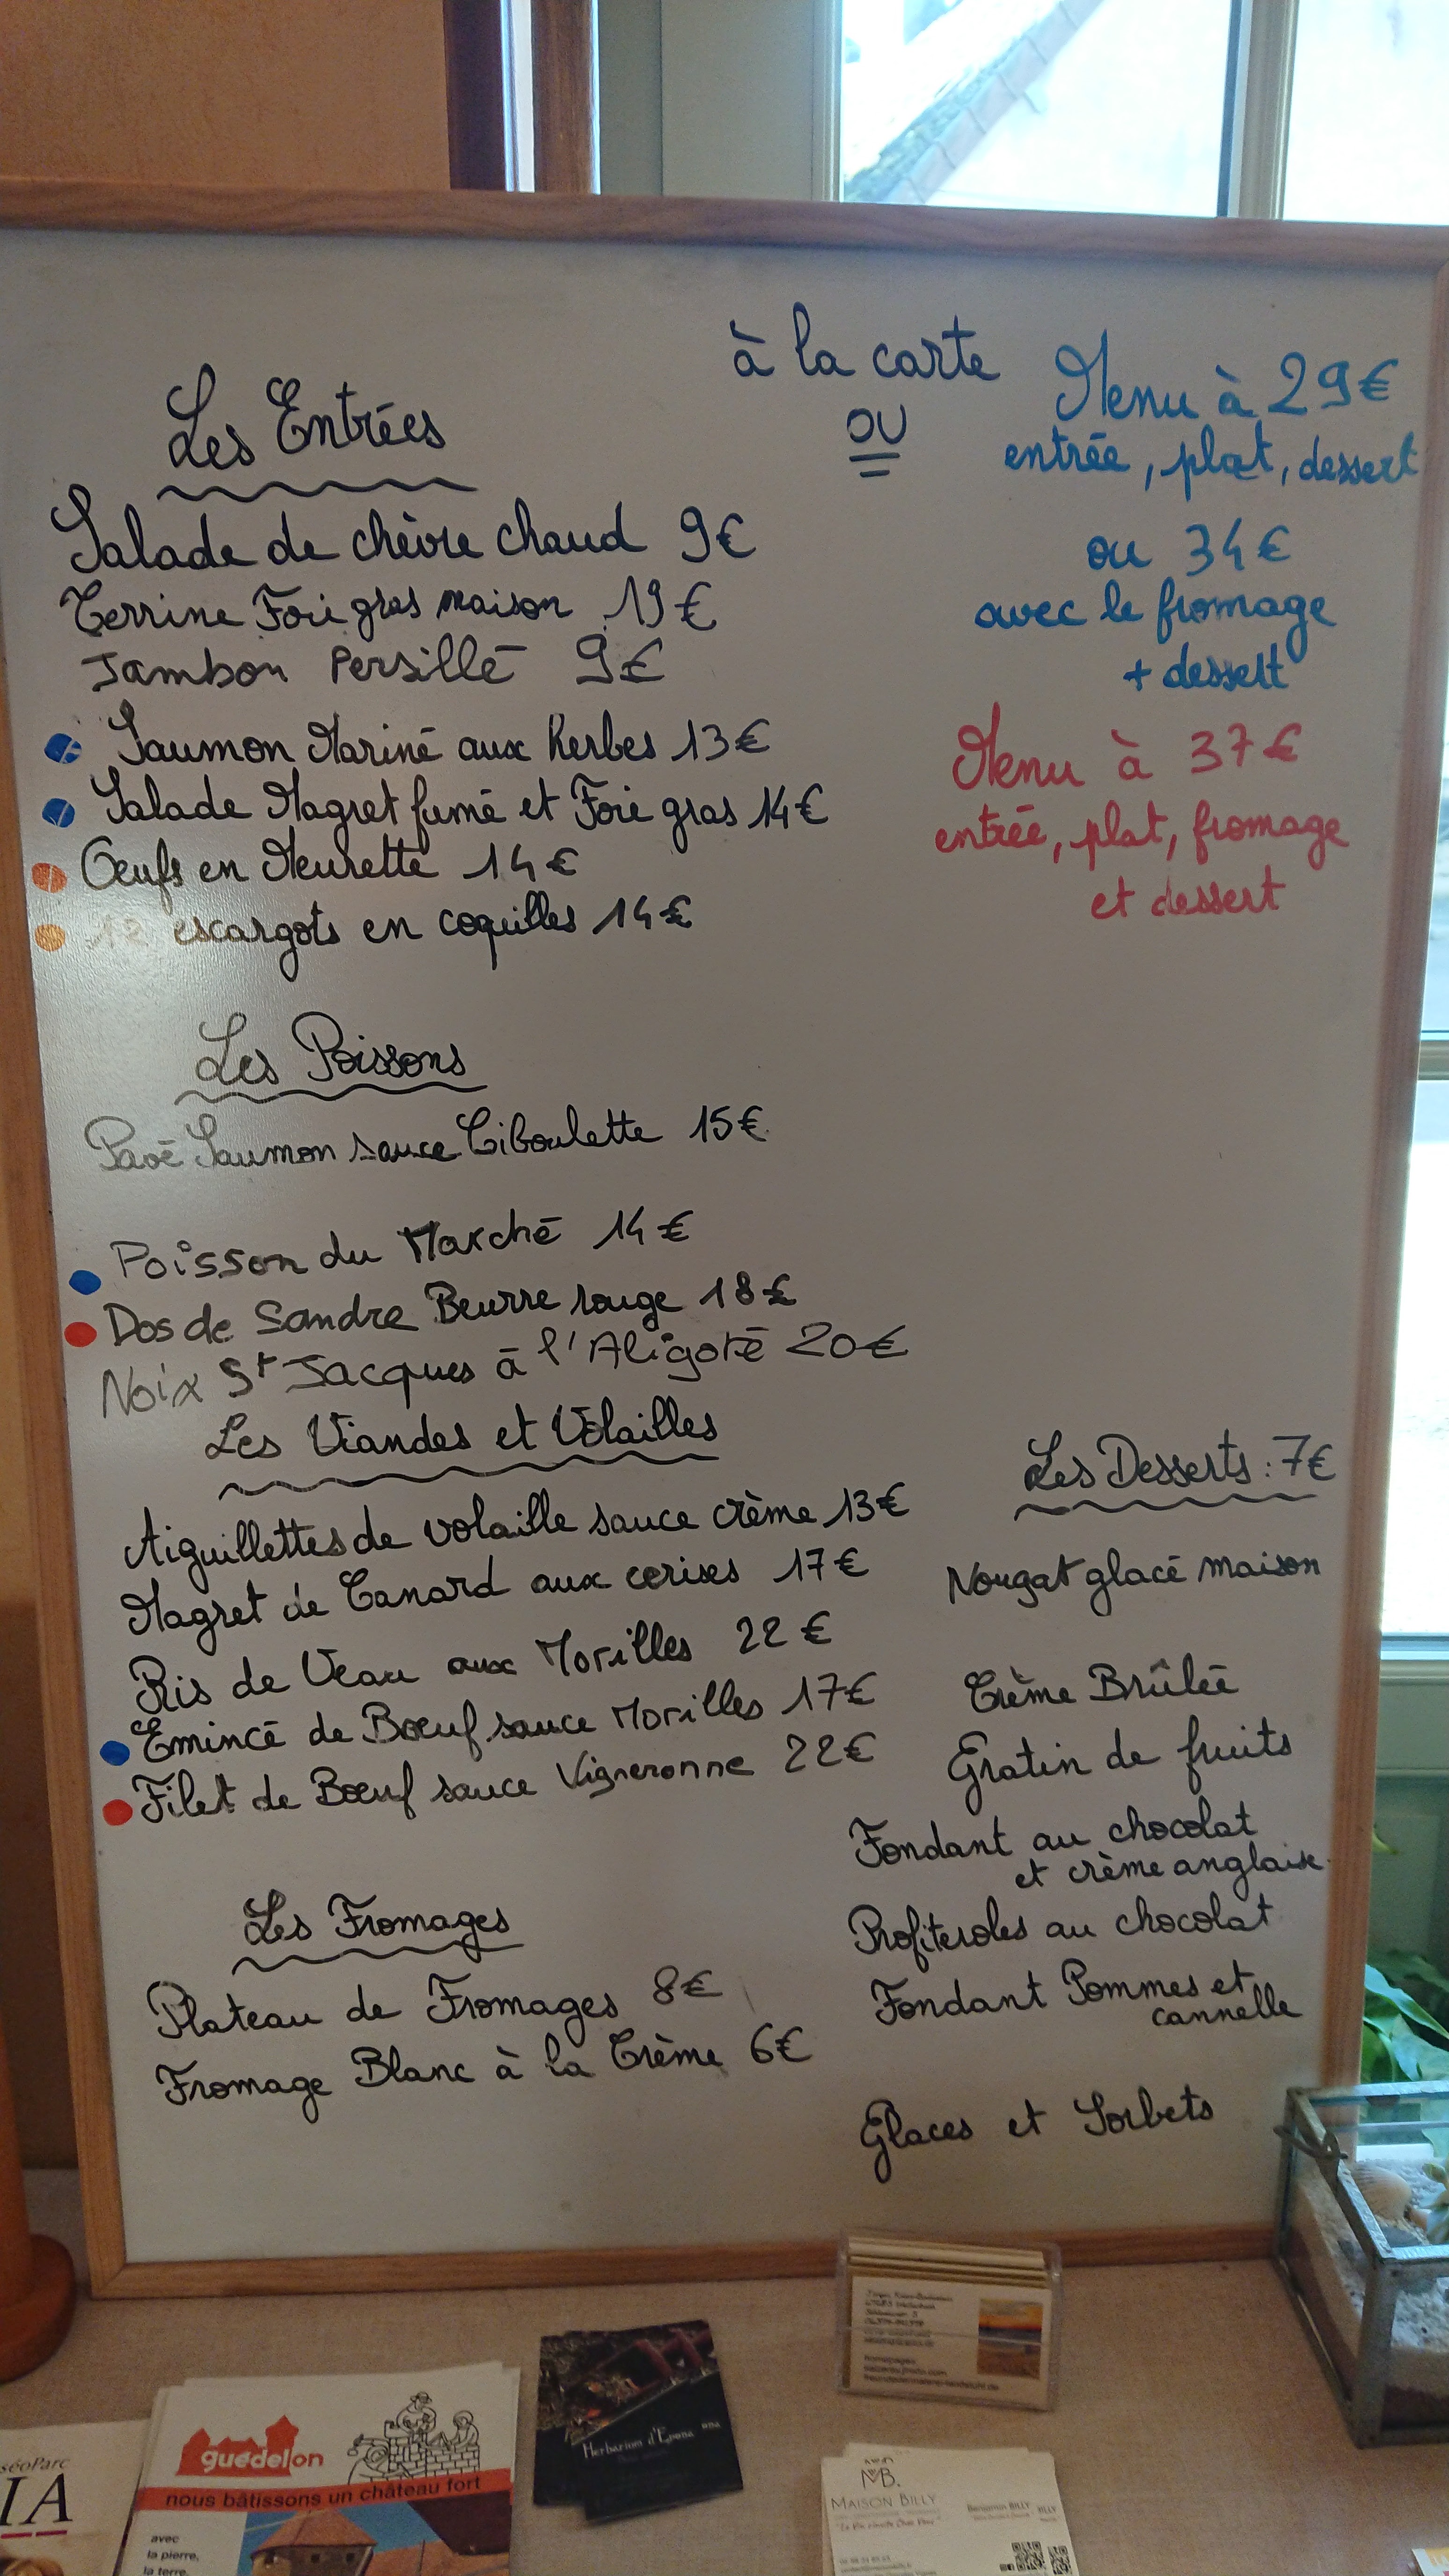 à la carte
OU
Menu à 29€
entrée, plat, dessert
ou 34€
avec le fromage
+ dessert
Menu à 37€
entrée, plat, fromage
et dessert
Les Entrées
Salade de chèvre chaud 9€
Terrine Foie gras maison 19€
Jambon Persillé 9€
Saumon Mariné aux herbes 13€
Salade Magret fumé et Foie gras 14€
Œufs en Meurette 14€
12 escargots en coquilles 14€
Les Poissons
Pavé Saumon sauce Ciboulette 15€
Poisson du Marché 14€
Dos de Sandre Beurre rouge 18€
Noix St Jacques à l'Aligoté 20€
Les Viandes et Volailles
Aiguillettes de volaille sauce crème 13€
Magret de Canard aux cerises 17€
Ris de Veau aux Morilles 22€
Emincé de Bœuf sauce Morilles 17€
Filet de Bœuf sauce Vigneronne 22€
Les Fromages
Plateau de Fromages 8€
Fromage Blanc à la Crème 6€
Les Desserts : 7€
Nougat glacé maison
Crème Brûlée
Gratin de fruits
Fondant au chocolat
et crème anglaise
Profiteroles au chocolat
Fondant Pommes et
cannelle
Glaces et Sorbets
séoParc
IA
guédelon
nous bâtissons un château fort
avec
la pierre,
la terre,
Herbarium d'Epona
MB.
MAISON BILLY
Benjamin BILLY